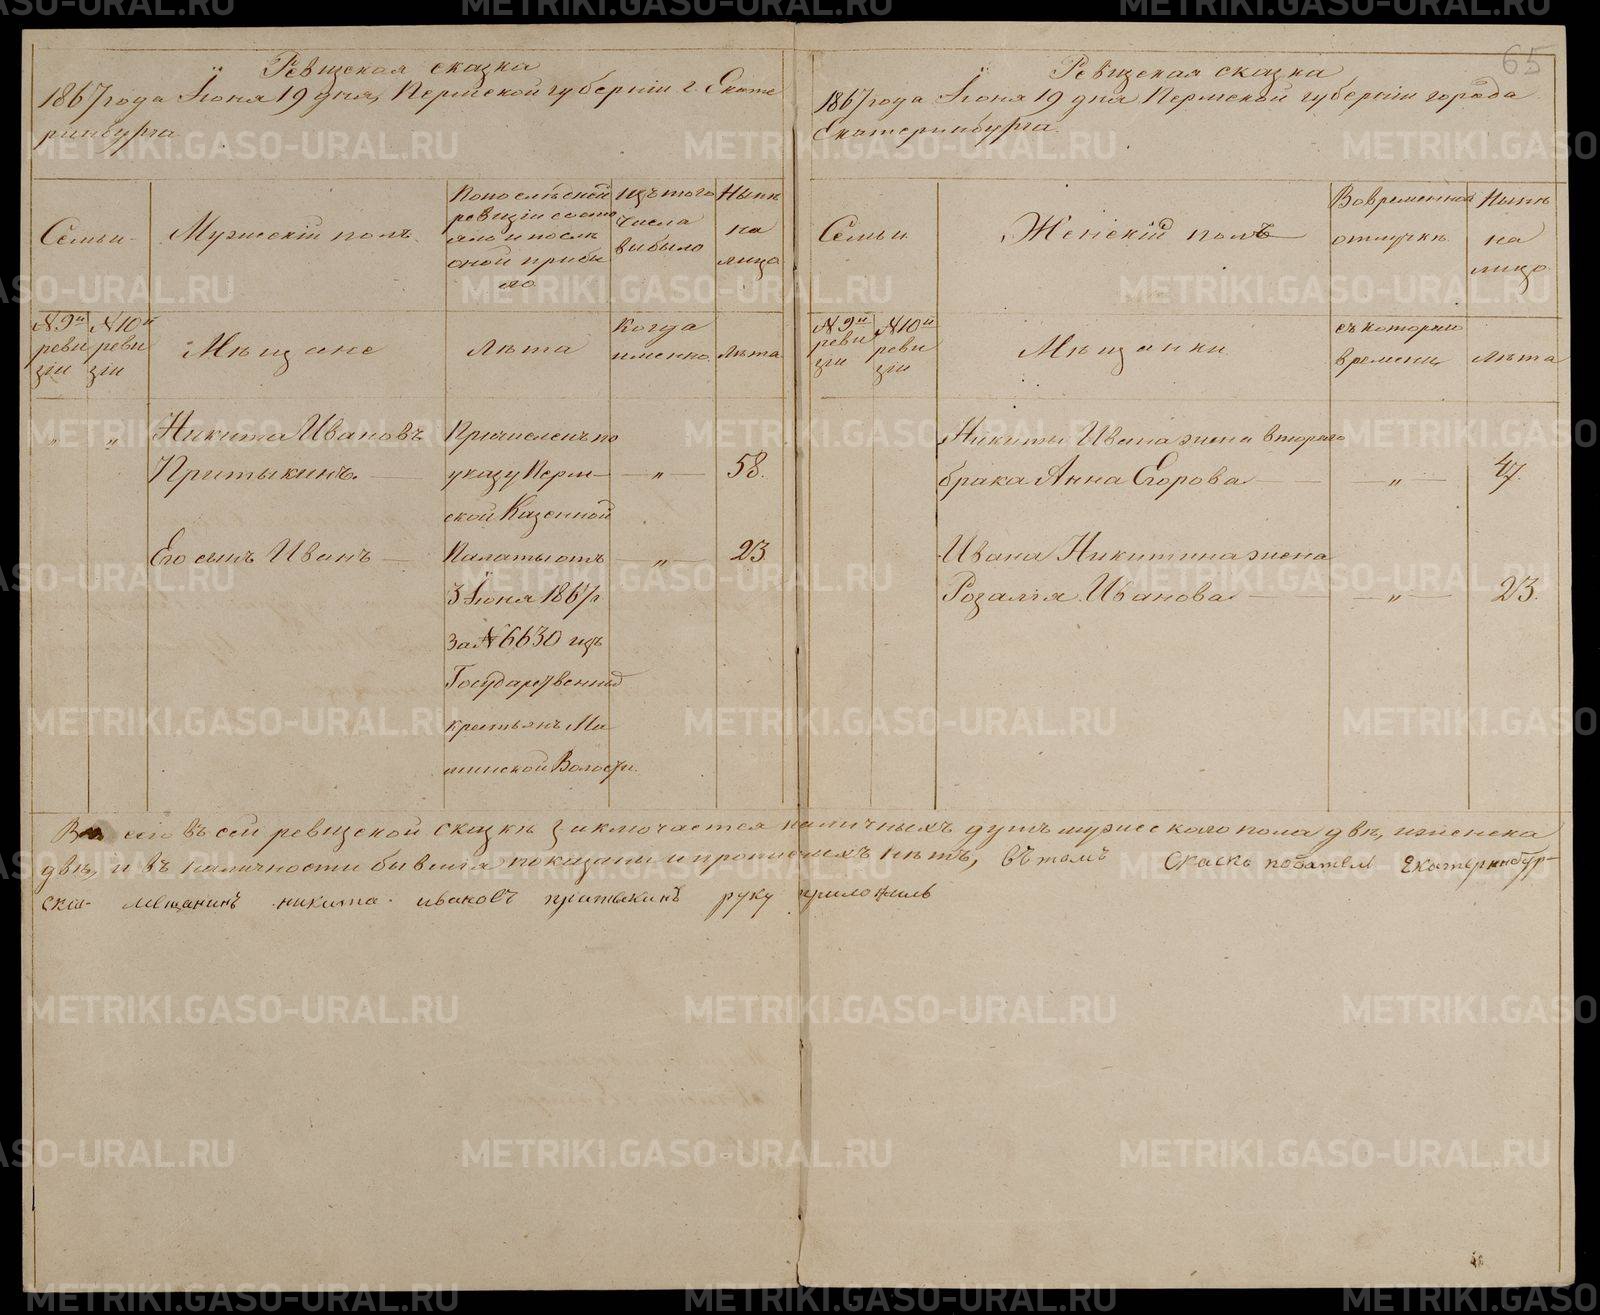 65
Ревизская сказка
1867 года Іюня 19 дня, Пермской губерніи г. Екате
ринбурга
Семьи
Мужескій полъ.
По последней
ревизіи состо
яло и после
оной прибы
ло
изъ того
числа
выбыло
Ныне
на
лицо
№ 9й
реви
зіи
№ 10й
реви
зіи
Мѣщане
Лѣта
Когда
именно
Лѣта
„ „ Никита Ивановъ
Притыкинъ. — „ — 58.
Его сынъ Иванъ — — „ — 23
Причисленъ по
указу Перм
ской Казенной
Палаты отъ
3 Іюня 1867 г
за № 6630 изъ
Государственныхъ
крестьянъ Ма
минской Волости.
Ревизская сказка
1867 года Іюня 19 дня Пермской губерніи города
Екатеринбурга.
Семьи
Женскій полъ
Во временной
отлучкѣ
Ныне
на
лицо
№ 9й
реви
зіи
№ 10й
реви
зіи
Мѣщанки
съ котораго
времени
Лѣта
Никиты Иванова жена втораго
брака Анна Егорова — „ — 47.
Ивана Никитина жена
Розалія Иванова — „ — 23.
Всего въ сей ревизской сказкѣ заключается наличныхъ душъ мужескаго пола двѣ, и женска
двѣ, и въ наличности бывшія показаны и прописныхъ нѣтъ, въ томъ Скаскѣ побателі Екатеринбур-
скій мещанинъ никита ивановъ притыкинъ руку приложилъ
METRIKI.GASO-URAL.RU